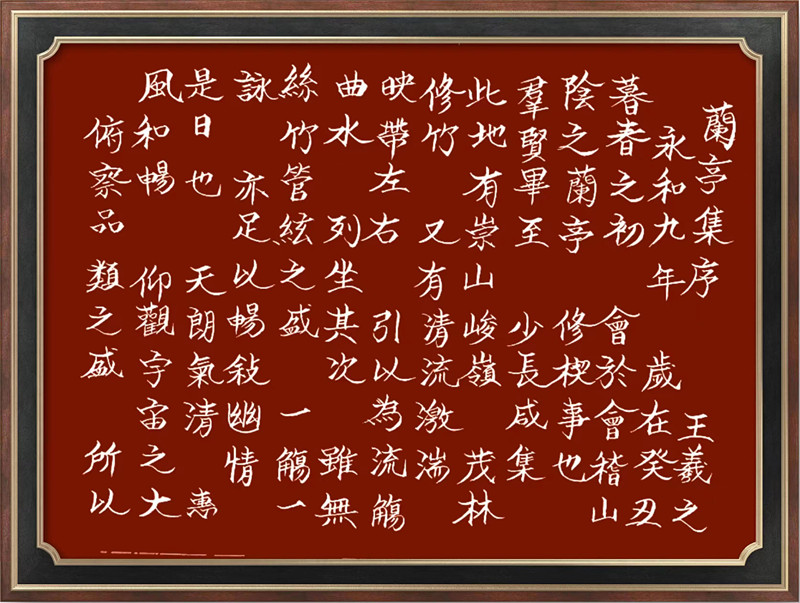 蘭亭集序 王羲之
永和九年 歲在癸丑
暮春之初 會於會稽山
陰之蘭亭 修楔事也
羣賢畢至 少長咸集
此地有崇山峻嶺 茂林
修竹 又有清流激湍
映帶左右 引以為流觴
曲水 列坐其次 雖無
絲竹管絃之盛 一觴一
詠 亦足以暢敍幽情
是日也 天朗氣清 惠
風和暢 仰觀宇宙之大
俯察品類之盛 所以